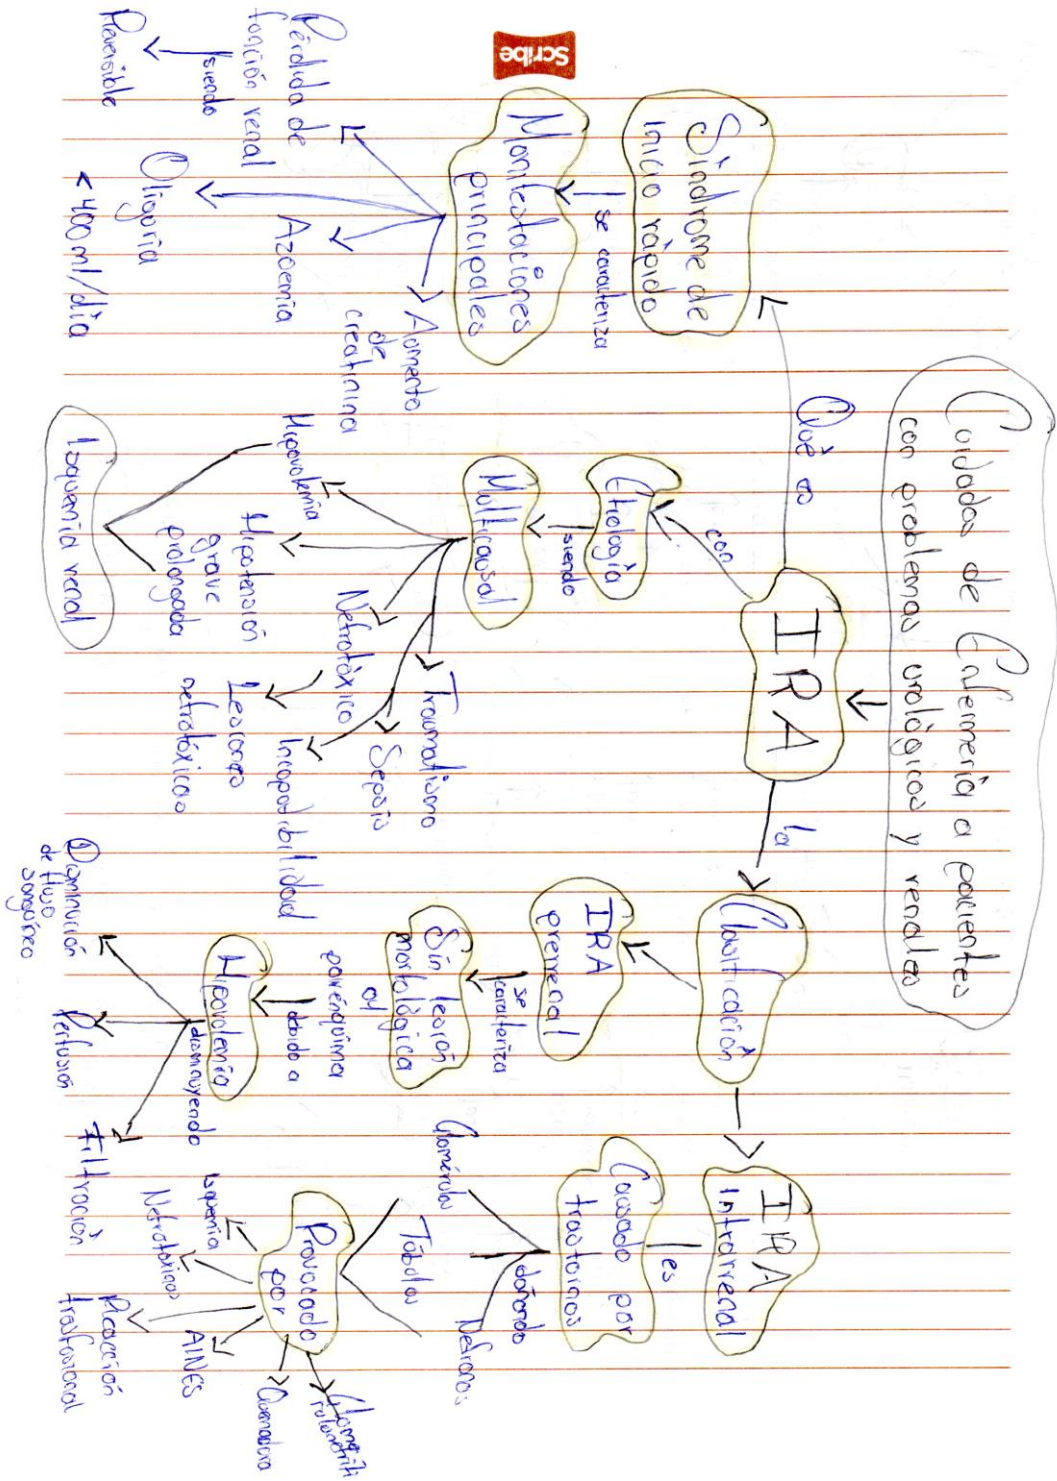 Scribe
Cuidados de Enfermería a pacientes
con problemas urológicos y renales
IRA
Qué es
Síndrome de
inicio rápido
se caracteriza
Manifestaciones
principales
Pérdida de
función renal
siendo
Reversible
Oliguria
< 400 ml/día
Azoemia
Aumento
de
creatinina
con
Etiología
siendo
Multicausal
Hipovolemia
Hipotensión
grave
prolongada
Isquemia renal
Nefrotóxico
Lesiones
nefrotóxicas
Incapatibilidad
Sepsis
Traumatismo
la
Clasificación
IRA
prerrenal
se
caracteriza
Sin lesión
morfológica
al
parénquima
debido a
Hipovolemia
disminuyendo
Disminución
de flujo
sanguíneo
Perfusión
Filtración
IRA
Intrarrenal
es
Causado por
trastornos
dañando
Glomérulos
Túbulos
Nefronas
Provocado
por
Isquemia
Nefrotoxinas
Reacción
trasfusional
AINES
Quemadura